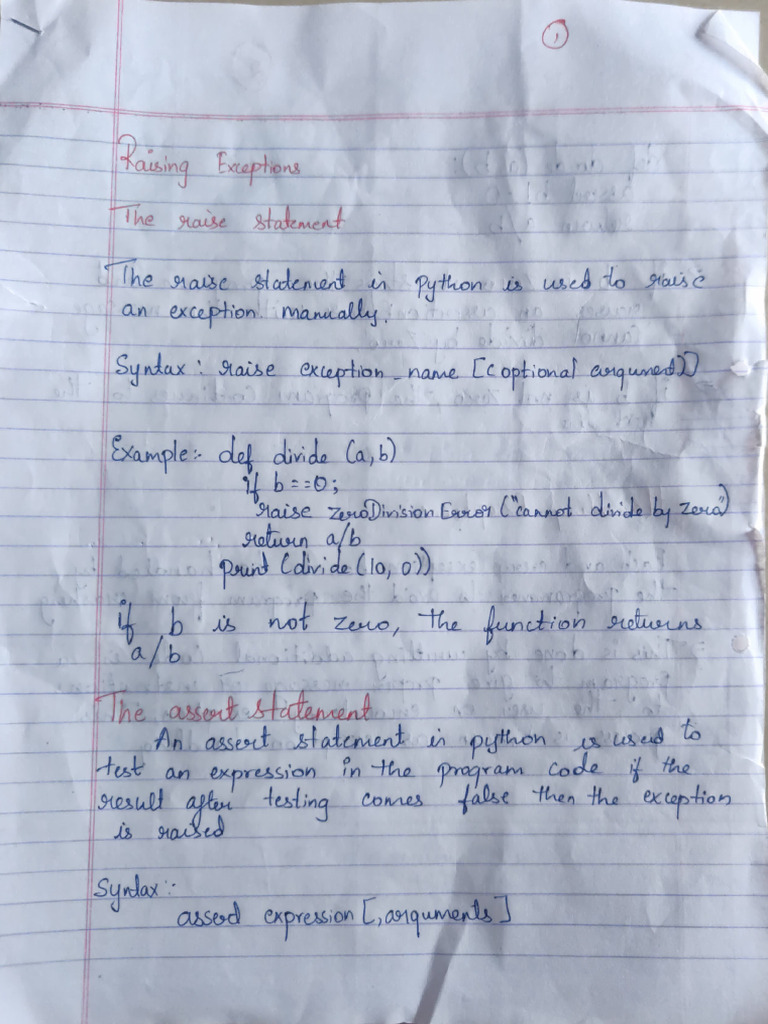 1
Raising Exceptions
The raise statement
The raise statement in python is used to raise
an exception manually.
Syntax : raise exception_name [(optional argument)]
Example:- def divide (a,b)
if b==0;
raise zeroDivision Error ("cannot divide by zero")
return a/b
print (divide (10, 0))
if b is not zero, the function returns
a/b
The assert statement
An assert statement in python is used to
test an expression in the program code if the
result after testing comes false then the exception
is raised
Syntax:-
assert expression [,arguments]